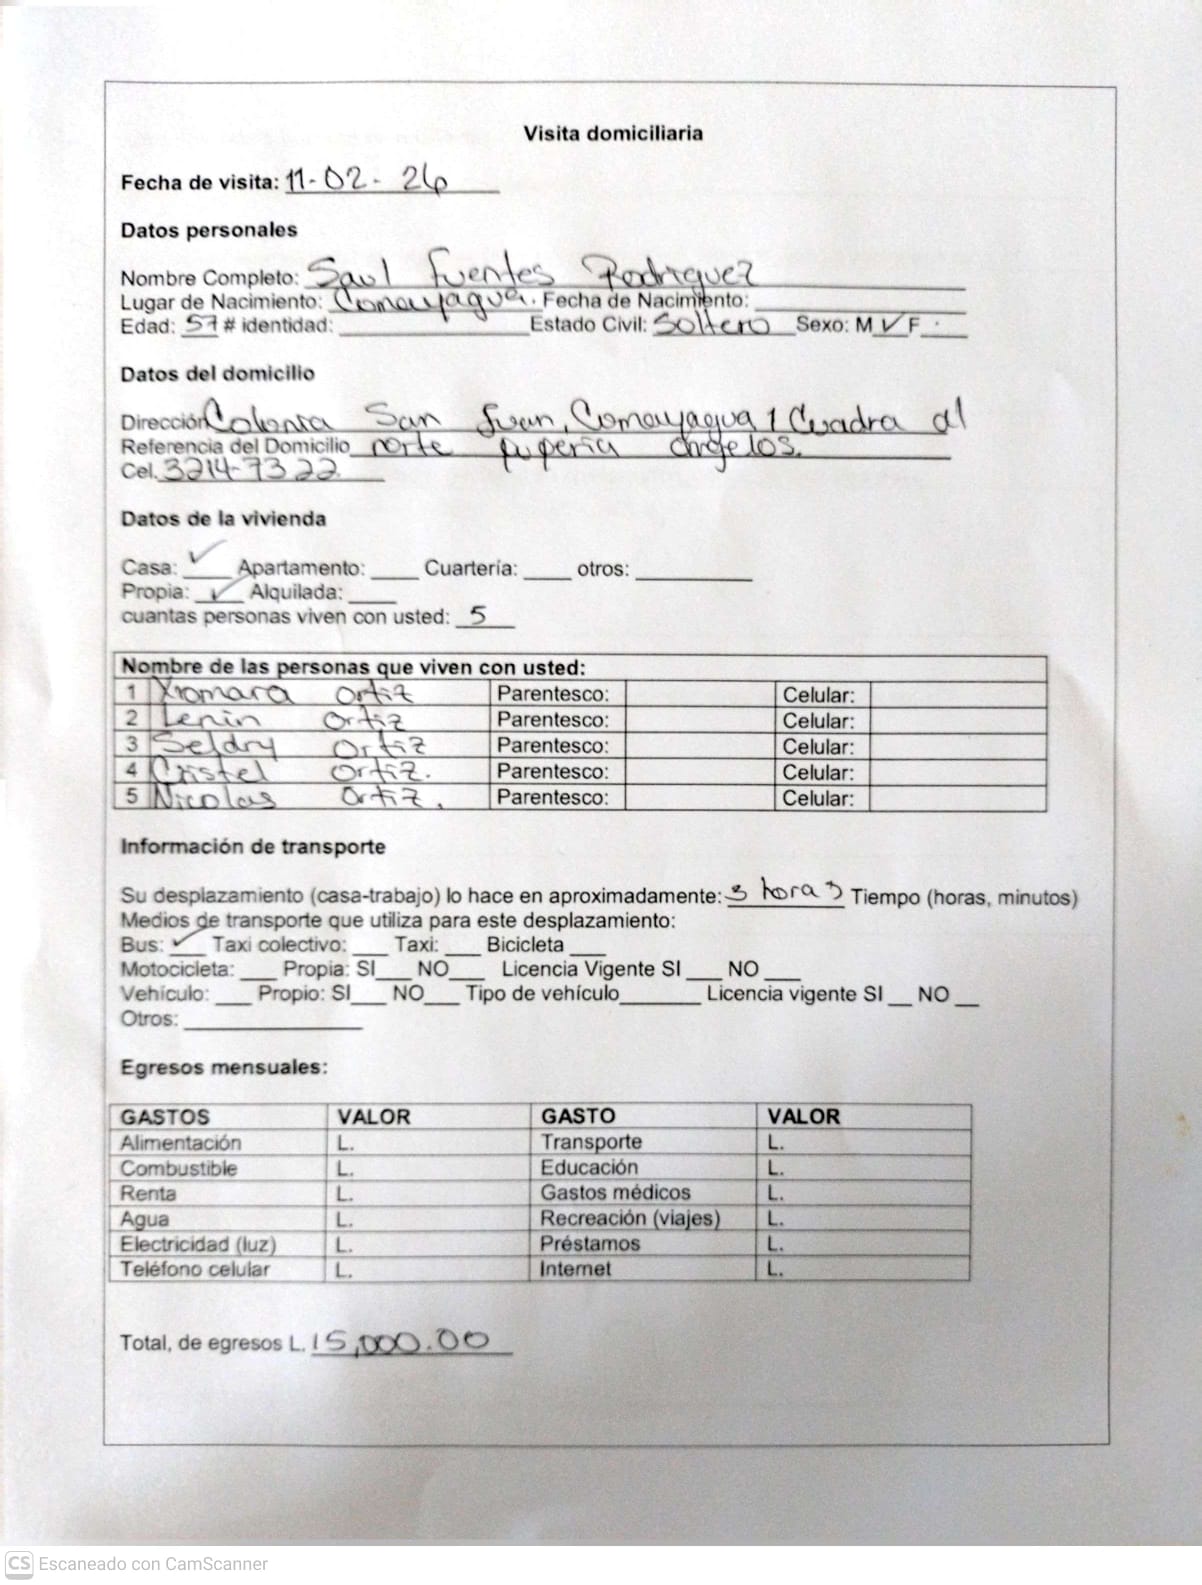 Visita domiciliaria
Fecha de visita: 11-02-26
Datos personales
Nombre Completo: Saul Fuentes Rodriguez
Lugar de Nacimiento: Comayagua. Fecha de Nacimiento: ___
Edad: 57 # identidad: ___ Estado Civil: Soltero Sexo: M ✓ F ___
Datos del domicilio
Dirección Colonia San Juan, Comayagua 1 Cuadra al
Referencia del Domicilio norte pulperia angelos.
Cel. 3214-7322
Datos de la vivienda
Casa: ✓ Apartamento: ___ Cuartería: ___ otros: ___
Propia: ✓ Alquilada: ___
cuantas personas viven con usted: 5
Nombre de las personas que viven con usted:
1 Xiomara Ortiz Parentesco: Celular:
2 Lenin Ortiz Parentesco: Celular:
3 Seldry Ortiz Parentesco: Celular:
4 Cristel Ortiz. Parentesco: Celular:
5 Nicolas Ortiz. Parentesco: Celular:
Información de transporte
Su desplazamiento (casa-trabajo) lo hace en aproximadamente: 3 horas Tiempo (horas, minutos)
Medios de transporte que utiliza para este desplazamiento:
Bus: ✓ Taxi colectivo: ___ Taxi: ___ Bicicleta ___
Motocicleta: ___ Propia: SI ___ NO ___ Licencia Vigente SI ___ NO ___
Vehículo: ___ Propio: SI ___ NO ___ Tipo de vehículo ___ Licencia vigente SI ___ NO ___
Otros: ___
Egresos mensuales:
GASTOS VALOR GASTO VALOR
Alimentación L. Transporte L.
Combustible L. Educación L.
Renta L. Gastos médicos L.
Agua L. Recreación (viajes) L.
Electricidad (luz) L. Préstamos L.
Teléfono celular L. Internet L.
Total, de egresos L. 15,000.00
CS Escaneado con CamScanner